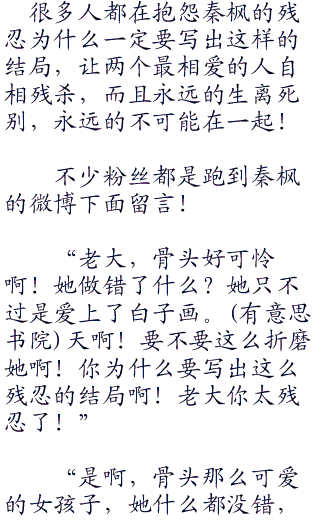 很多人都在抱怨秦枫的残
忍为什么一定要写出这样的
结局，让两个最相爱的人自
相残杀，而且永远的生离死
别，永远的不可能在一起！
不少粉丝都是跑到秦枫
的微博下面留言！
“老大，骨头好可怜
啊！她做错了什么？她只不
过是爱上了白子画。(有意思
书院) 天啊！要不要这么折磨
她啊！你为什么要写出这么
残忍的结局啊！老大你太残
忍了！”
“是啊，骨头那么可爱
的女孩子，她什么都没错，